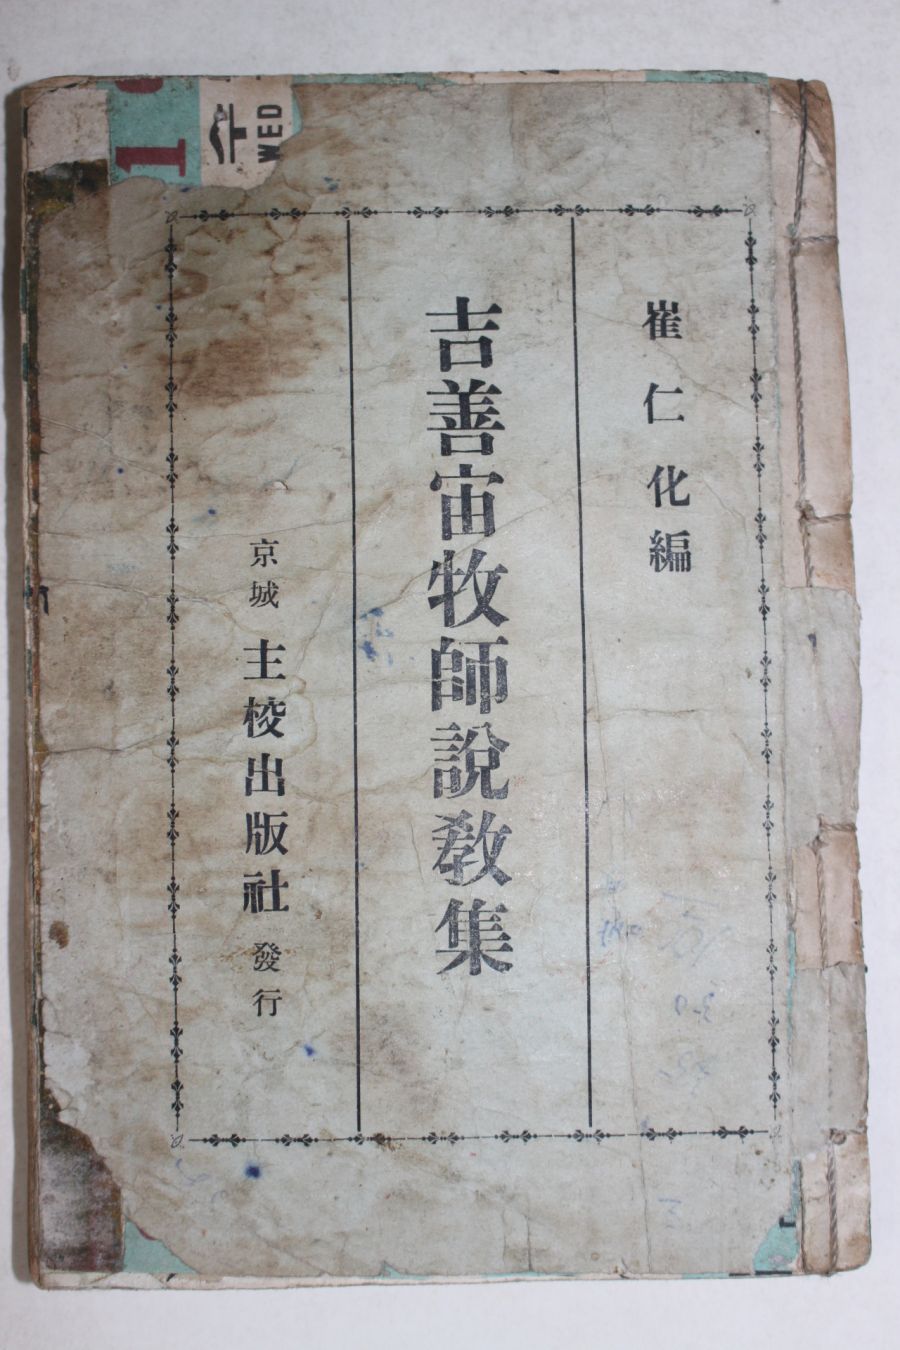 崔仁化編
吉善宙牧師說敎集
京城 主校出版社 發行
1
수
WED